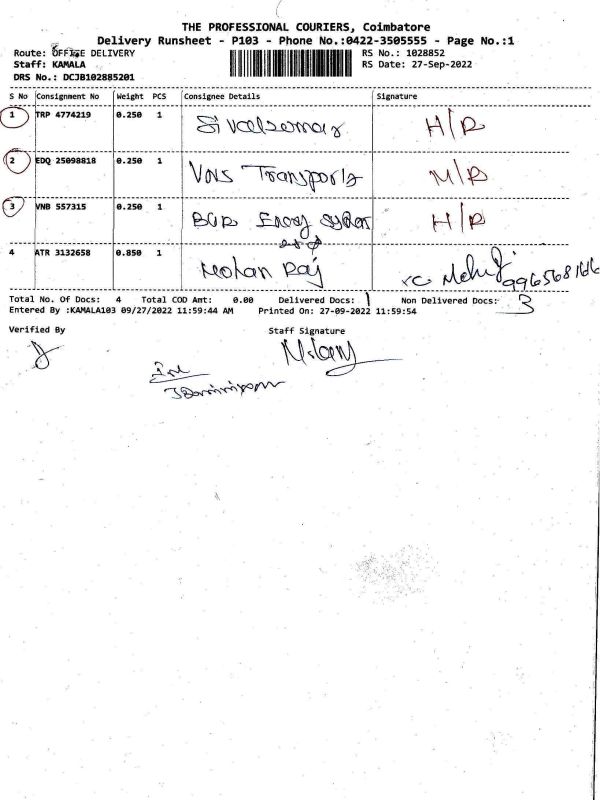 THE PROFESSIONAL COURIERS, Coimbatore
Delivery Runsheet - P103 - Phone No.:0422-3505555 - Page No.:1
Route: OFFICE DELIVERY RS No.: 1028852
Staff: KAMALA RS Date: 27-Sep-2022
DRS No.: DCJB102885201
S No Consignment No Weight PCS Consignee Details Signature
1 TRP 4774219 0.250 1 Sivakumar H/R
2 EDQ 25098818 0.250 1 VNS Transports M/R
3 VNB 557315 0.250 1 BGR Energy System H/R
4 ATR 3132658 0.850 1 Mohan Raj 9965681666
Total No. Of Docs: 4 Total COD Amt: 0.00 Delivered Docs: 1 Non Delivered Docs: 3
Entered By :KAMALA103 09/27/2022 11:59:44 AM Printed On: 27-09-2022 11:59:54
Verified By Staff Signature